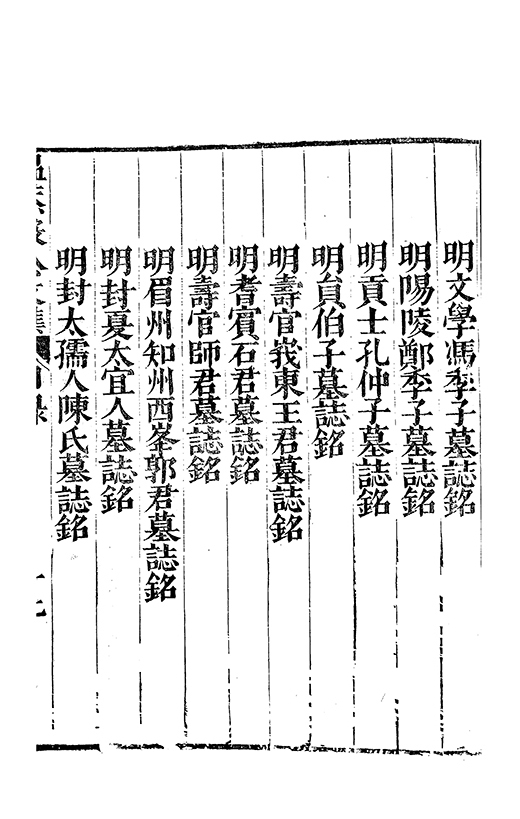 明文學馮季子墓誌銘
明陽陵鄭季子墓誌銘
明貢士孔仲子墓誌銘
明負伯子墓誌銘
明壽官峩東王君墓誌銘
明耆賓石君墓誌銘
明壽官師君墓誌銘
明眉州知州西峯郭君墓誌銘
明封夏太宜人墓誌銘
明封太孺人陳氏墓誌銘